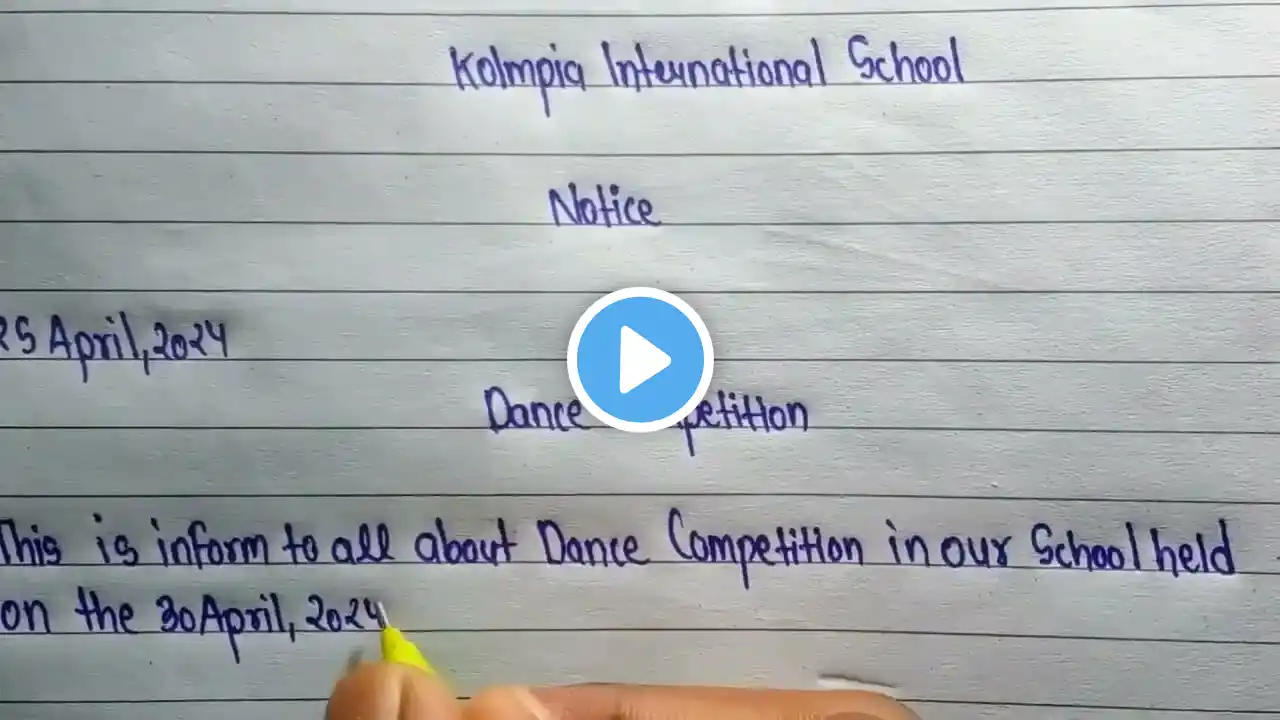 Kolmpia International School
Notice
25 April, 2024
Dance petition
This is inform to all about Dance Competition in our School held
on the 30 April, 2024